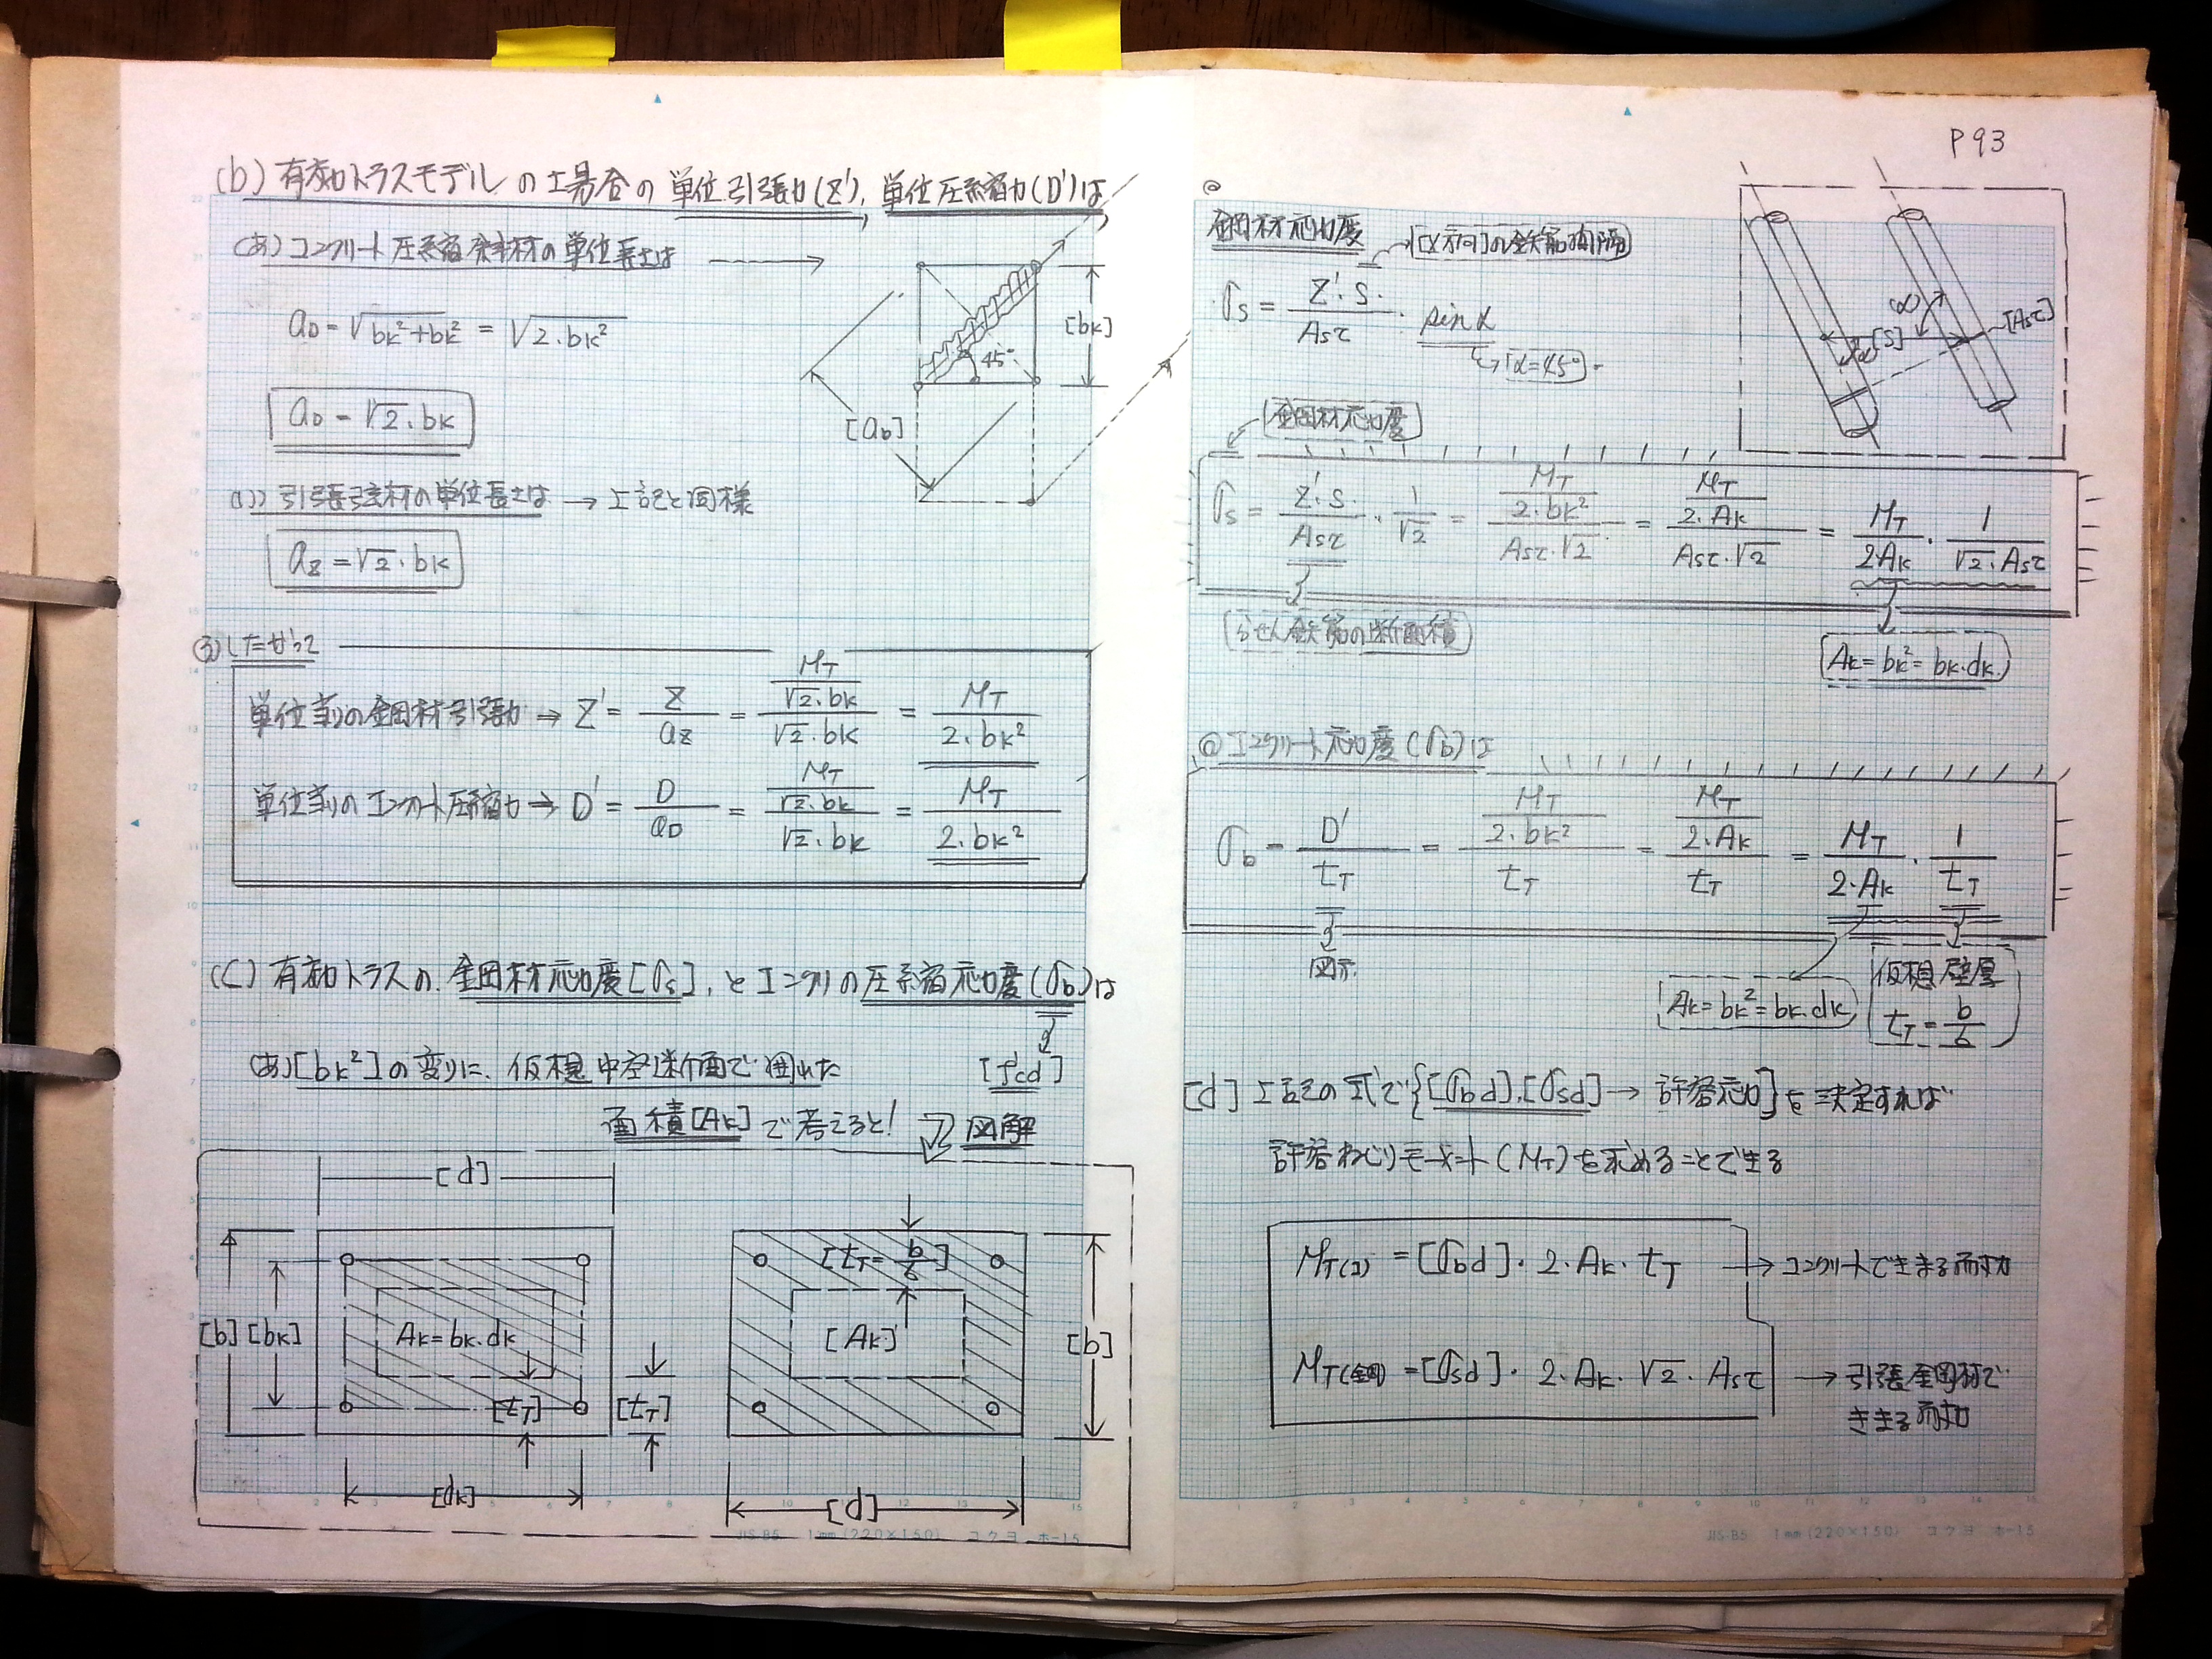 (b) 有効トラスモデルの場合の単位引張力(Z'), 単位圧縮力(D')は
(あ) コンクリート圧縮斜材の単位長さは
aD = √bk²+bk² = √2.bk²
aD = √2.bk
[bk]
45°
[aD]
(い) 引張弦材の単位長さは → 上記と同様
az = √2.bk
(う) したがって
単位当りの鋼材引張力 → Z' = Z/az = (MT/√2.bk)/(√2.bk) = MT/2.bk²
単位当りのコンクリート圧縮力 → D' = D/aD = (MT/√2.bk)/(√2.bk) = MT/2.bk²
(C) 有効トラスの、鋼材応力度[σs], とコンクリの圧縮応力度(σb)は
[fcd]
(あ) [bk²]の変りに、仮想中空断面で囲れた
面積[Ak]で考えると! 図解
[d]
[b] [bk]
Ak=bk.dk
[tT]
[tT]
[dk]
[tT = b/6]
[Ak]
[b]
[d]
JIS-B5 1mm(220×150) コクヨ ホ-15
P93
鋼材応力度
[X方向]の鉄筋間隔
σs = Z'.S./Asτ . sinα
[α=45°]
α
[S]
α
[Asτ]
鋼材応力度
σs = Z'.S./Asτ . 1/√2 = (MT/2.bk²)/(Asτ.√2) = (MT/2.Ak)/(Asτ.√2) = MT/2Ak . 1/√2.Asτ
らせん鉄筋の断面積
Ak=bk²=bk.dk.
コンクリート応力度(σb)は
σb = D'/tT = (MT/2.bk²)/tT = (MT/2.Ak)/tT = MT/2.Ak . 1/tT
図示.
Ak=bk²=bk.dk
仮想壁厚
tT = b/6
[d] 上記の式で{[σbd],[σsd] → 許容応力}を決定すれば
許容ねじりモーメント(MT)を求めることできる
MT(コ) = [σbd]. 2.Ak. tT → コンクリートできまる耐力
MT(鋼) = [σsd]. 2.Ak. √2. Asτ → 引張鋼材で
きまる耐力
JIS-B5 1mm(220×150) コクヨ ホ-15